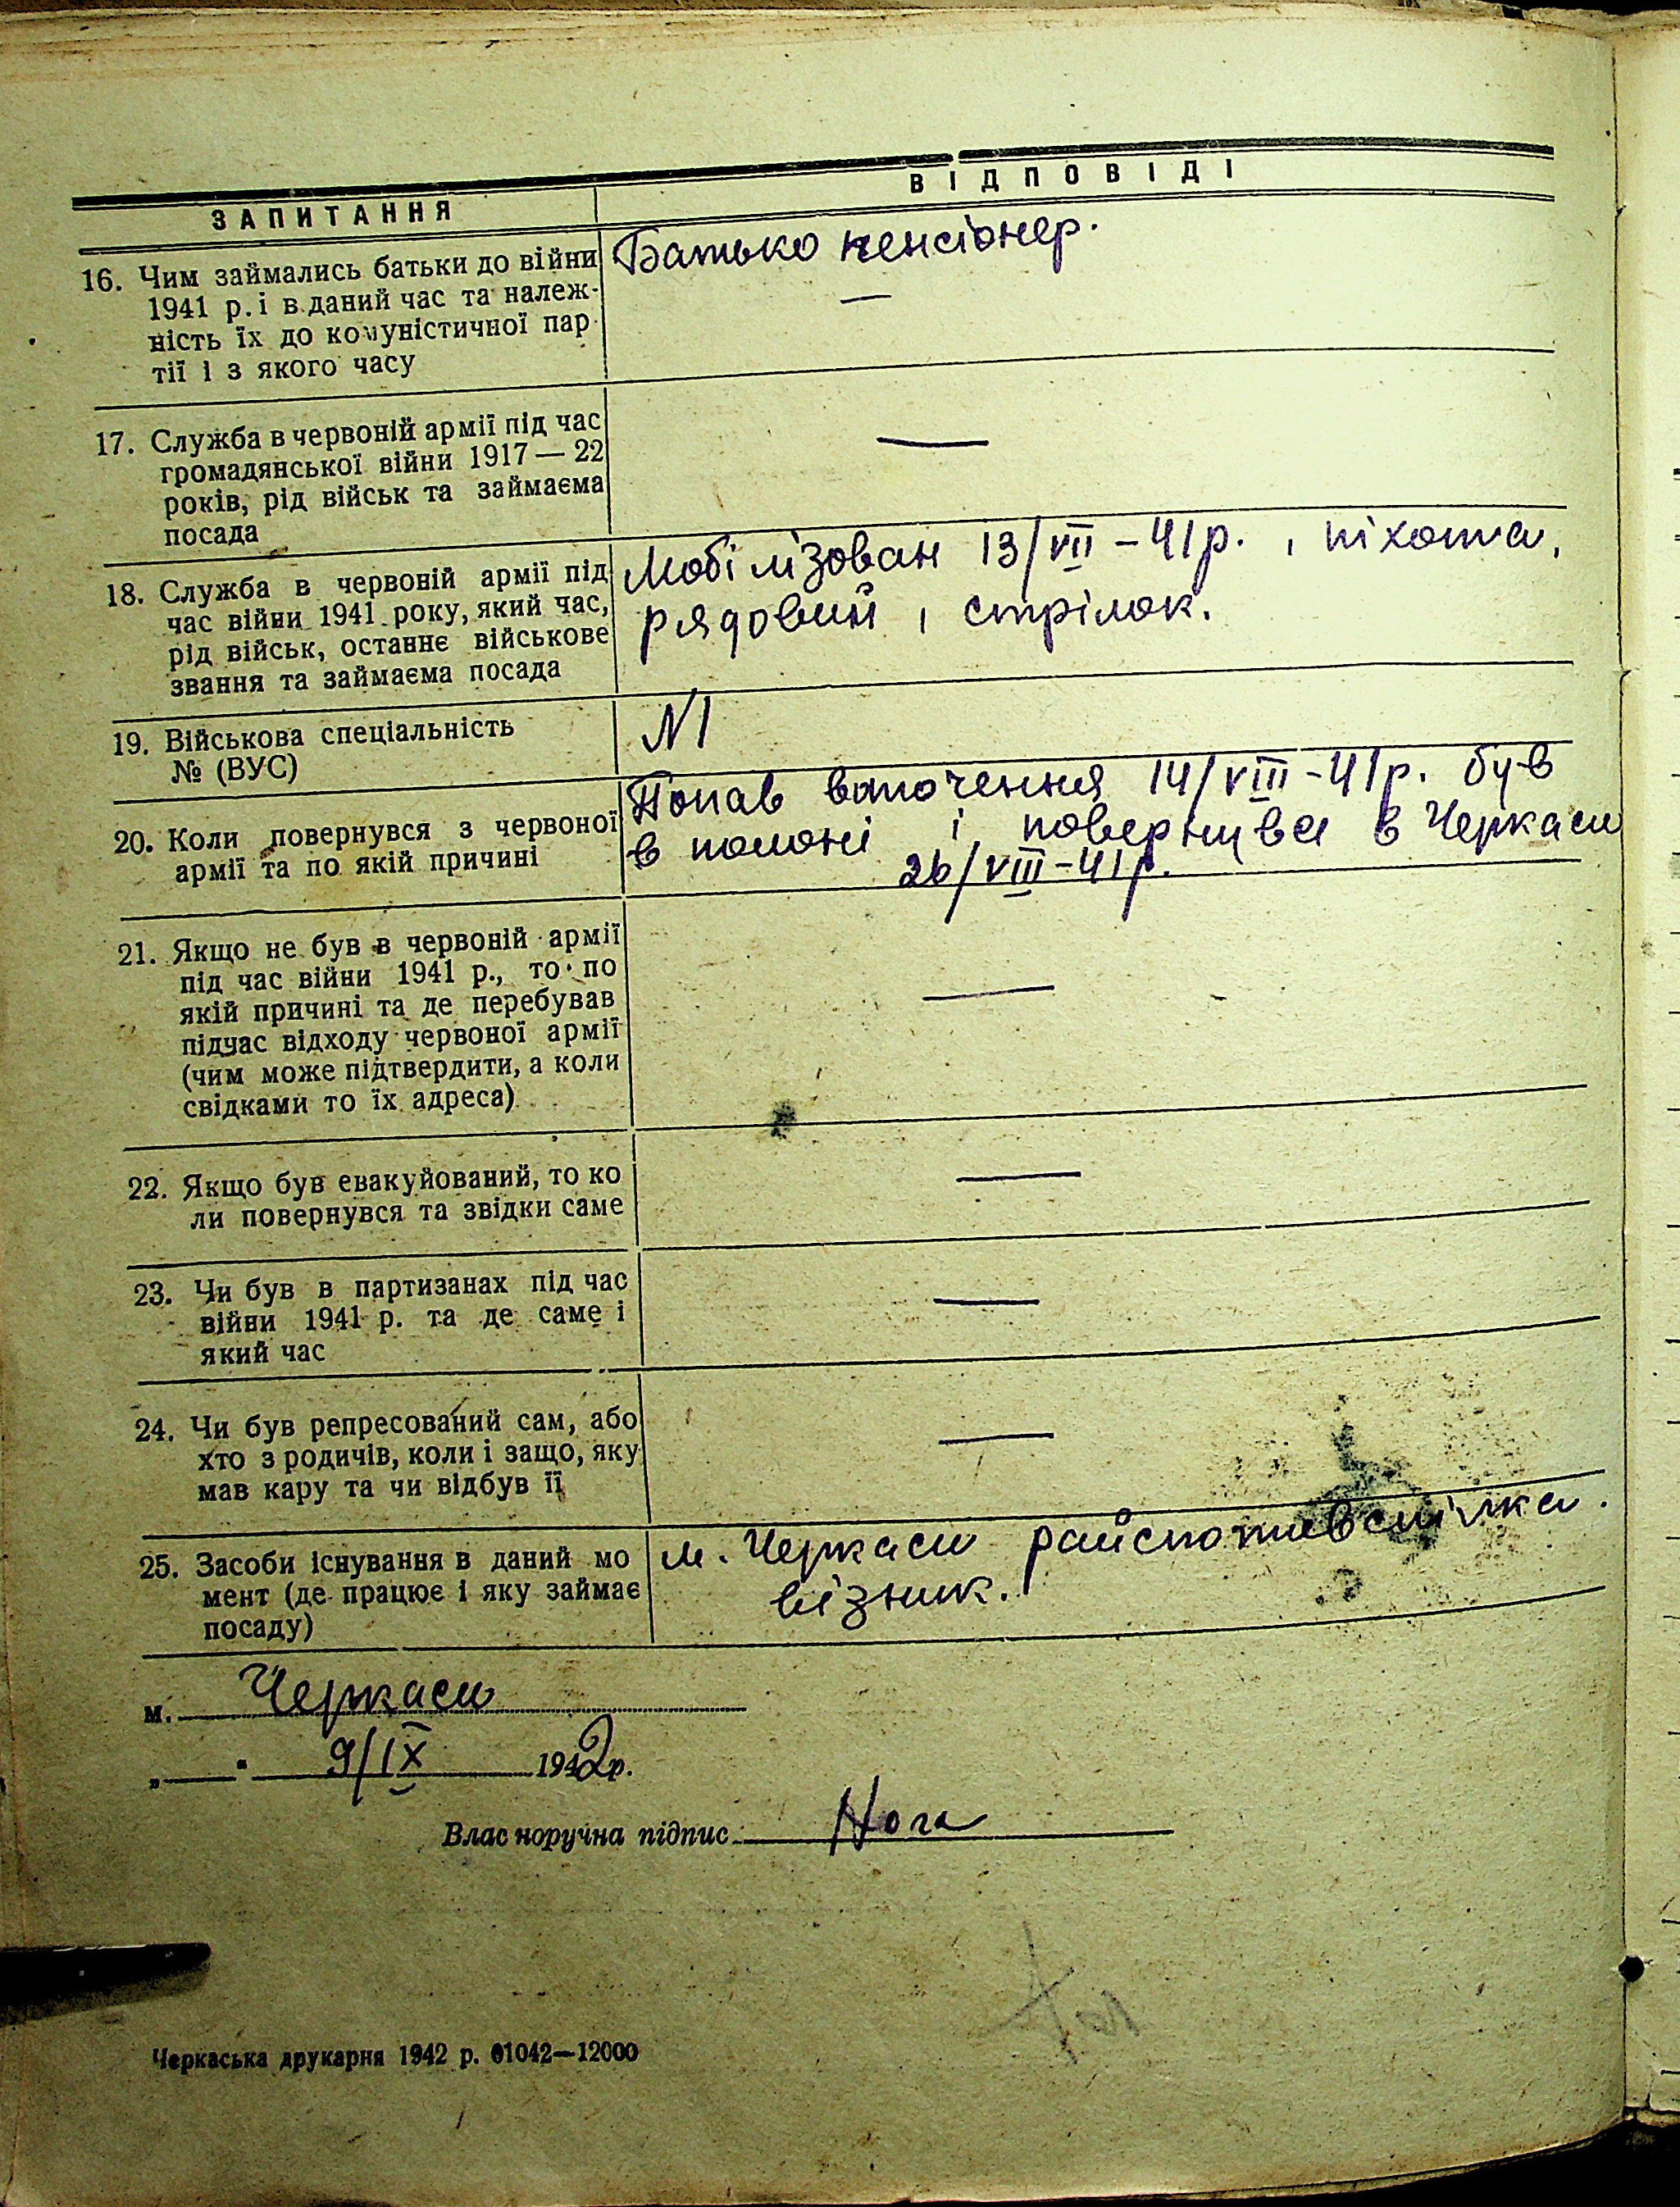 ЗАПИТАННЯ
ВІДПОВІДІ
16. Чим займались батьки до війни
1941 р. і в даний час та належ-
ність їх до комуністичної пар
тії і з якого часу
Батько пенсіонер.
—
17. Служба в червоній армії під час
громадянської війни 1917 — 22
років, рід військ та займаєма
посада
—
18. Служба в червоній армії під
час війни 1941 року, який час,
рід військ, останнє військове
звання та займаєма посада
Мобілізован 13/VII – 41 р. , піхота,
рядовий , стрілок.
19. Військова спеціальність
№ (ВУС)
N1
20. Коли повернувся з червоної
армії та по якій причині
Попав в оточення 14/VIII – 41 р. був
в полоні і повернувся в Черкаси
26/VIII – 41 р.
21. Якщо не був в червоній армії
під час війни 1941 р., то по
якій причині та де перебував
підчас відходу червоної армії
(чим може підтвердити, а коли
свідками то їх адреса)
—
22. Якщо був евакуйований, то ко
ли повернувся та звідки саме
—
23. Чи був в партизанах під час
війни 1941 р. та де саме і
який час
—
24. Чи був репресований сам, або
хто з родичів, коли і защо, яку
мав кару та чи відбув її
—
25. Засоби існування в даний мо
мент (де працює і яку займає
посаду)
м. Черкаси райспоживспілка.
візник.
м. Черкаси
„ “ 9/IX 1942 р.
Влас норучна підпис Нога
Черкаська друкарня 1942 р. 01042—12000